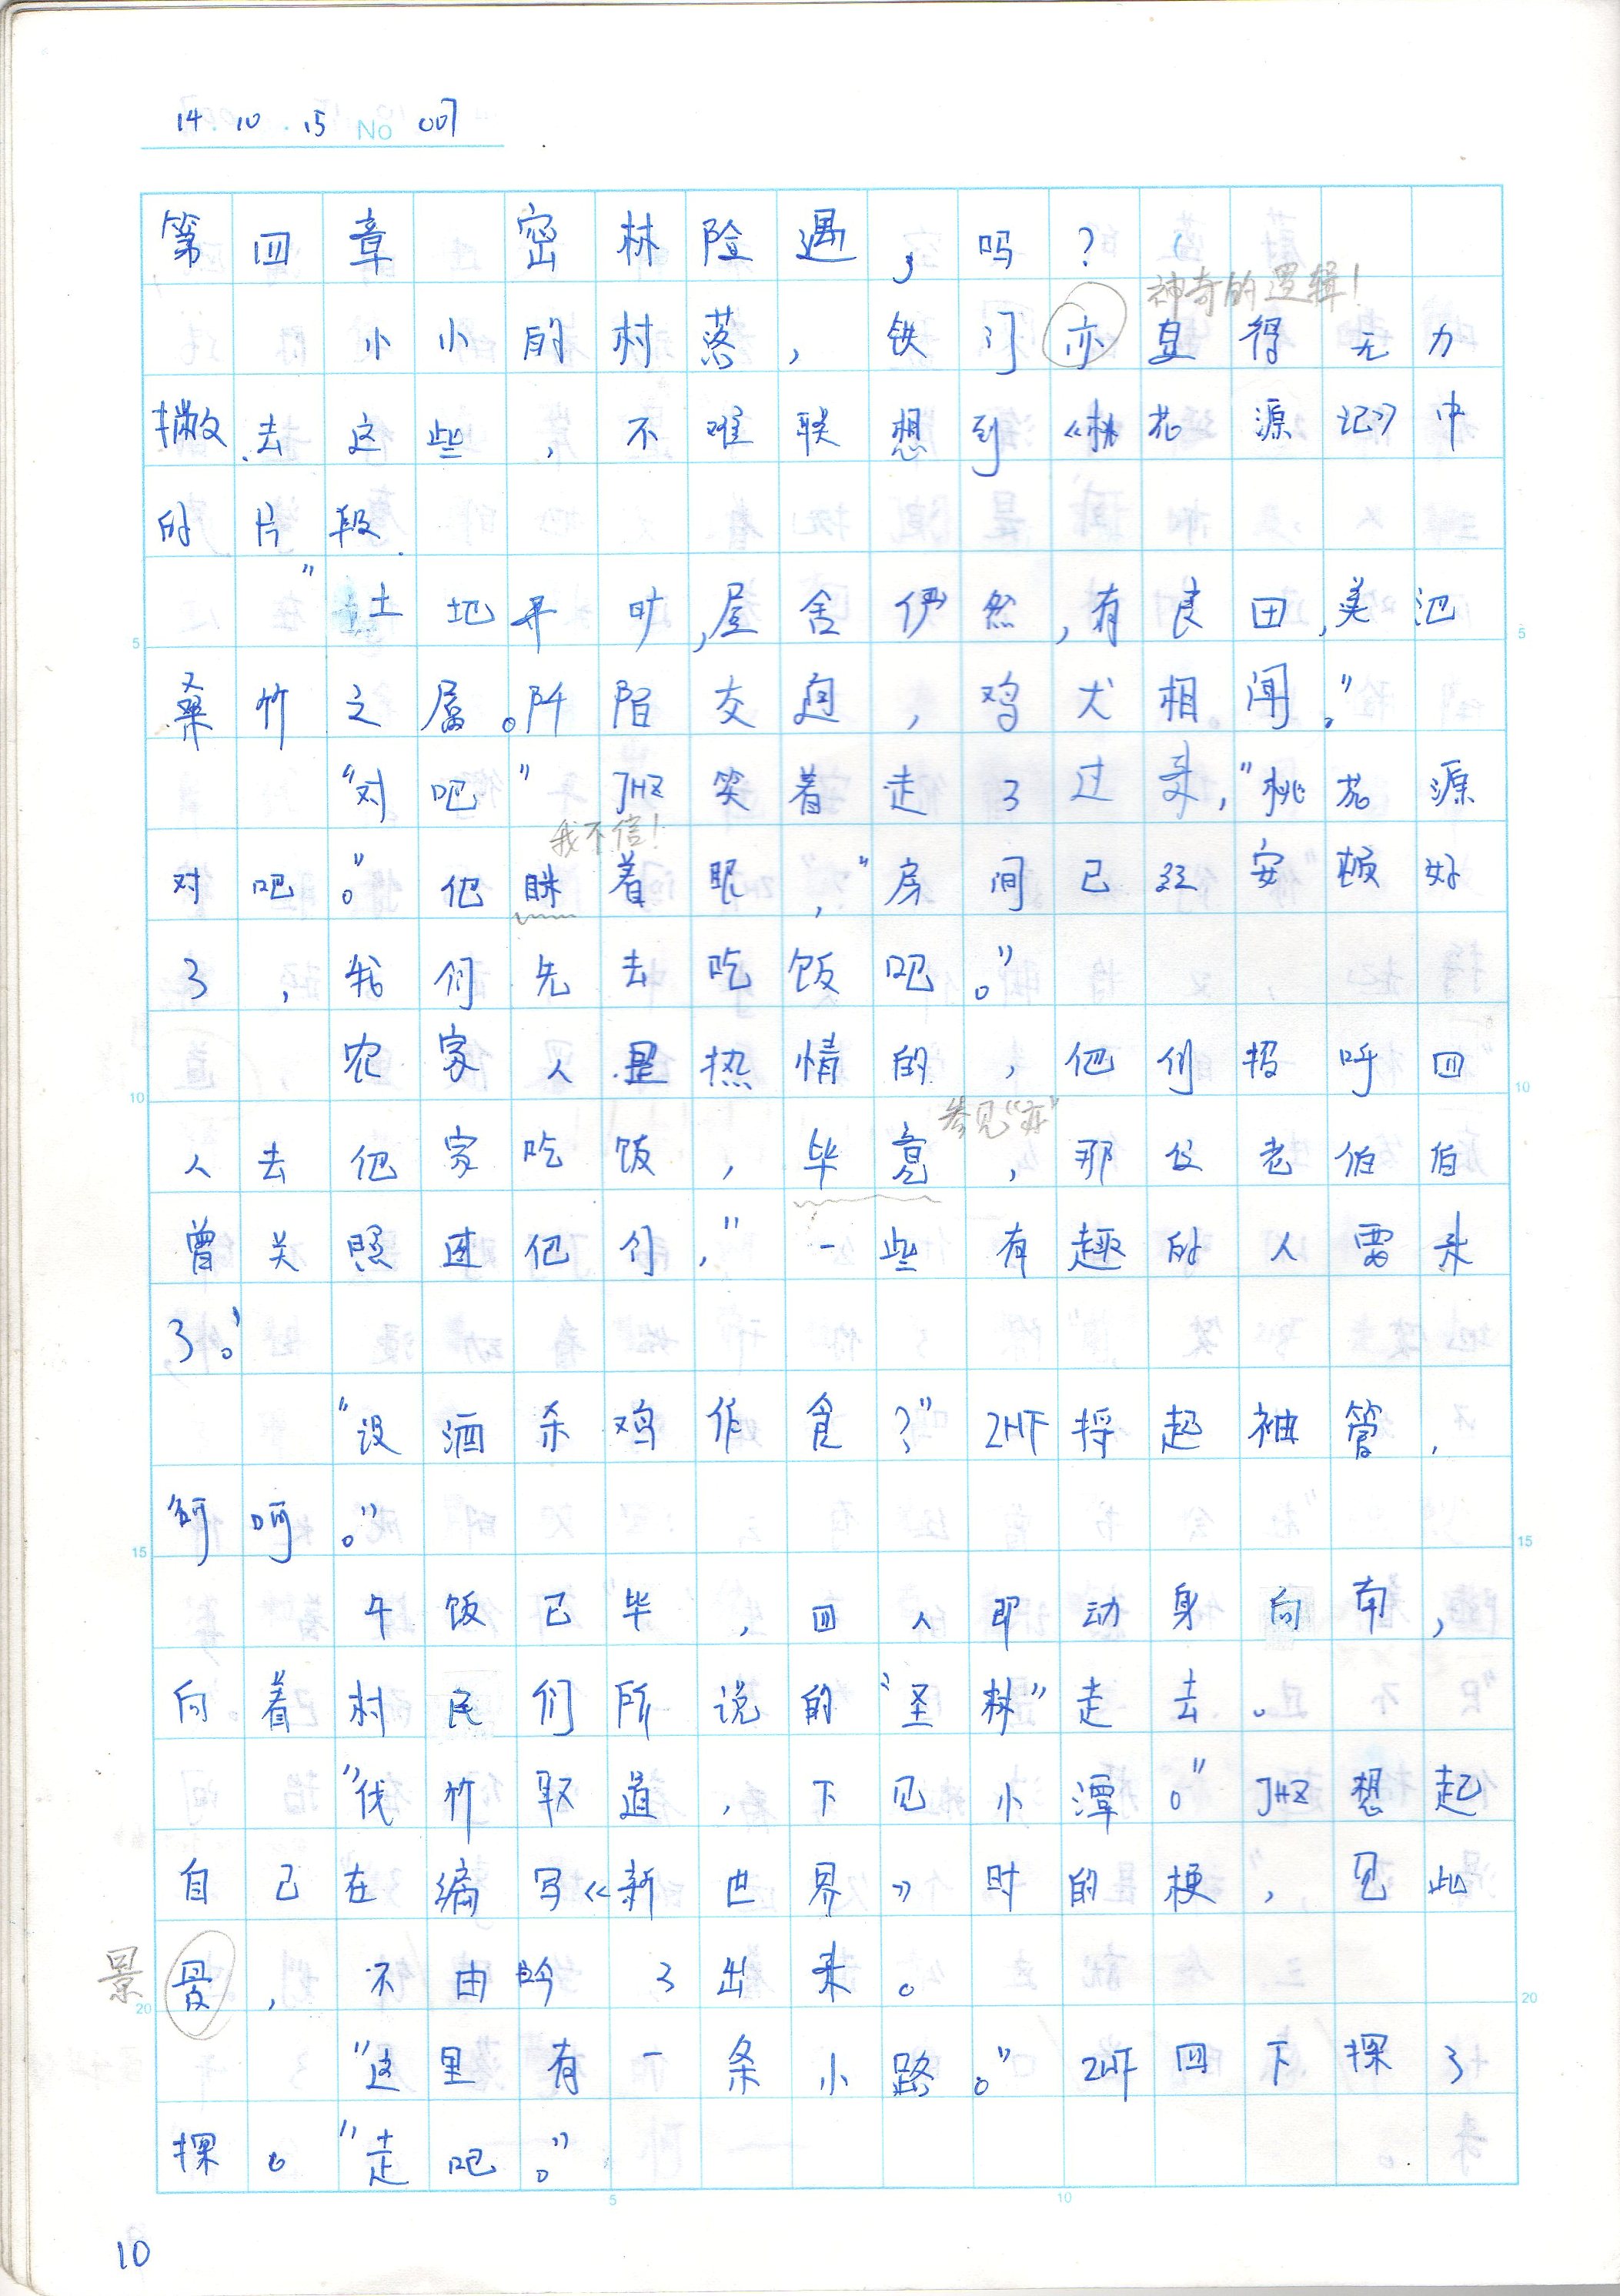 14.10.15 No 007
第四章 密林险遇，吗？
神奇的逻辑！
小小的村落，铁门亦显得无力
撇去这些，不难联想到《桃花源记》中
的片段.
"土地平旷,屋舍俨然,有良田,美池
桑竹之属。阡陌交通，鸡犬相闻。"
"对吧"JHZ笑着走了过来,"桃花源
我不信！
对吧。"他眯着眼，"房间已经安顿好
了，我们先去吃饭吧。"
农家人是热情的，他们招呼四
参见"亦"
人去他家吃饭，毕竟，那位老伯伯
曾关照过他们，"一些有趣的人要来
了。"
"设酒杀鸡作食？"ZHF捋起袖管，
呵呵。"
午饭已毕，四人即动身向南，
向着村民们所说的"圣林"走去。
"伐竹取道，下见小潭。"JHZ想起
自己在编写《新世界》时的梗，见此
景
，不由吟了出来。
"这里有一条小路。"ZHF四下探了
探。"走吧。"
5 10
5 10 15 20
5 10 15 20
10